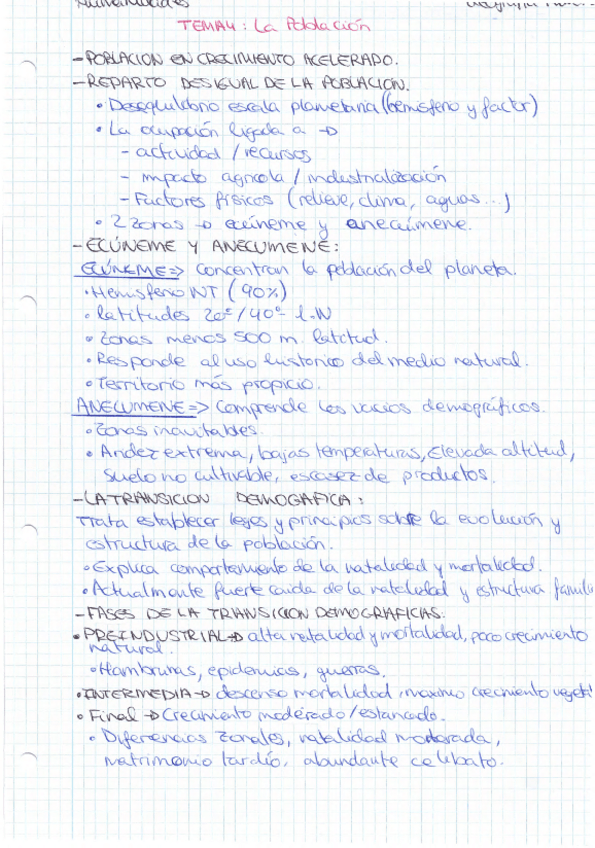 Humanidades
TEMA4: La Población
-POBLACION EN CRECIMIENTO ACELERADO.
-REPARTO DESIGUAL DE LA POBLACION.
• Desequilibrio escala planetaria (hemisferio y factor)
• La ocupación ligada a →
- actividad / recursos
- impacto agricola / industrialización
- Factores físicos (relieve, clima, aguas...)
• 2 zonas → ecúneme y anecúmene.
- ECÚNEME Y ANECUMENE:
ECÚNEME=> Concentran la población del planeta.
• Hemisferio NT (90%)
• latitudes 20º/40º l.N
• Zonas menos 500 m. latitud.
• Responde al uso historico del medio natural.
• Territorio más propicio.
ANECUMENE=> Comprende los vacios demográficos.
• Zonas inavitables.
• Aridez extrema, bajas temperaturas, Elevada altitud,
suelo no cultivable, escasez de productos.
-LA TRANSICION DEMOGRAFICA:
Trata establecer leyes y principios sobre la evolución y
estructura de la población.
• Explica comportamiento de la natalidad y mortalidad.
• Actualmente fuerte caida de la natalidad y estructura
-FASES DE LA TRANSICION DEMOGRAFICAS.
• PREINDUSTRIAL→ alta natalidad y mortalidad, poco crecimiento
natural.
• Hambrunas, epidemias, guerras.
• INTERMEDIA→ descenso mortalidad, maximo crecimiento
• Final → Crecimiento moderado/estancado.
• Diferencias zonales, natalidad moderada,
matrimonio tardío, abundante celibato.